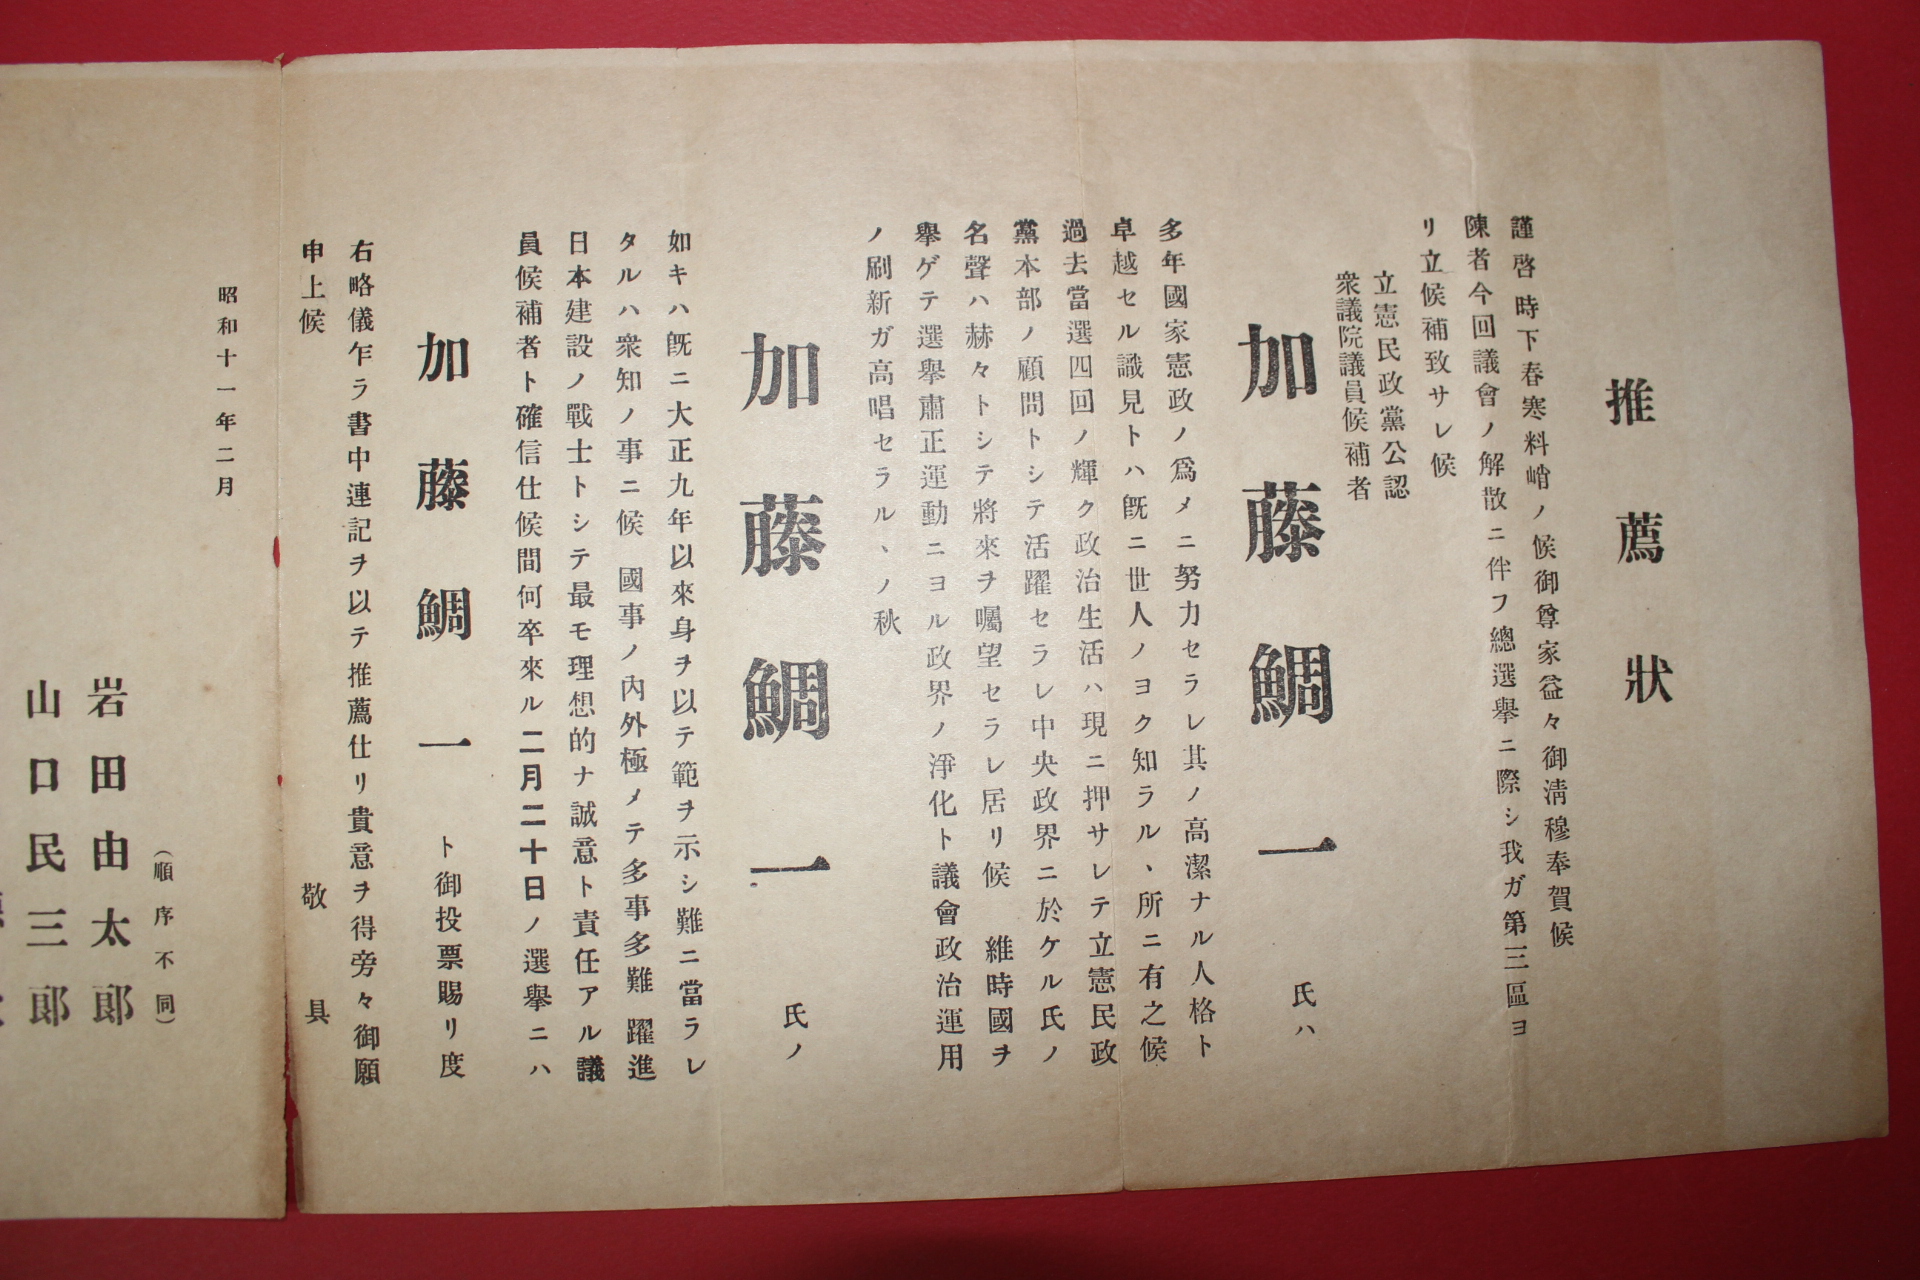 推薦狀
謹啓 時下春寒料峭ノ候御尊家益々御淸穆奉賀候
陳者今回議會ノ解散ニ伴フ總選擧ニ際シ我ガ第三區ヨ
リ立候補致サレ候
立憲民政黨公認
衆議院議員候補者
加藤鯛一 氏ハ
多年國家憲政ノ爲メニ努力セラレ其ノ高潔ナル人格ト
卓越セル識見トハ旣ニ世人ノヨク知ラル、所ニ有之候
過去當選四回ノ輝ク政治生活ハ現ニ押サレテ立憲民政
黨本部ノ顧問トシテ活躍セラレ中央政界ニ於ケル氏ノ
名聲ハ赫々トシテ將來ヲ囑望セラレ居リ候 維時國ヲ
擧ゲテ選擧肅正運動ニヨル政界ノ淨化ト議會政治運用
ノ刷新ガ高唱セラル、ノ秋
加藤鯛一 氏ノ
如キハ旣ニ大正九年以來身ヲ以テ範ヲ示シ難ニ當ラレ
タルハ衆知ノ事ニ候 國事ノ內外極メテ多事多難 躍進
日本建設ノ戰士トシテ最モ理想的ナ誠意ト責任アル議
員候補者ト確信仕候間何卒來ル二月二十日ノ選擧ニハ
加藤鯛一 ト御投票賜リ度
右略儀乍ラ書中連記ヲ以テ推薦仕リ貴意ヲ得旁々御願
申上候 敬具
昭和十一年二月
(順序不同)
岩田由太郞
山口民三郞